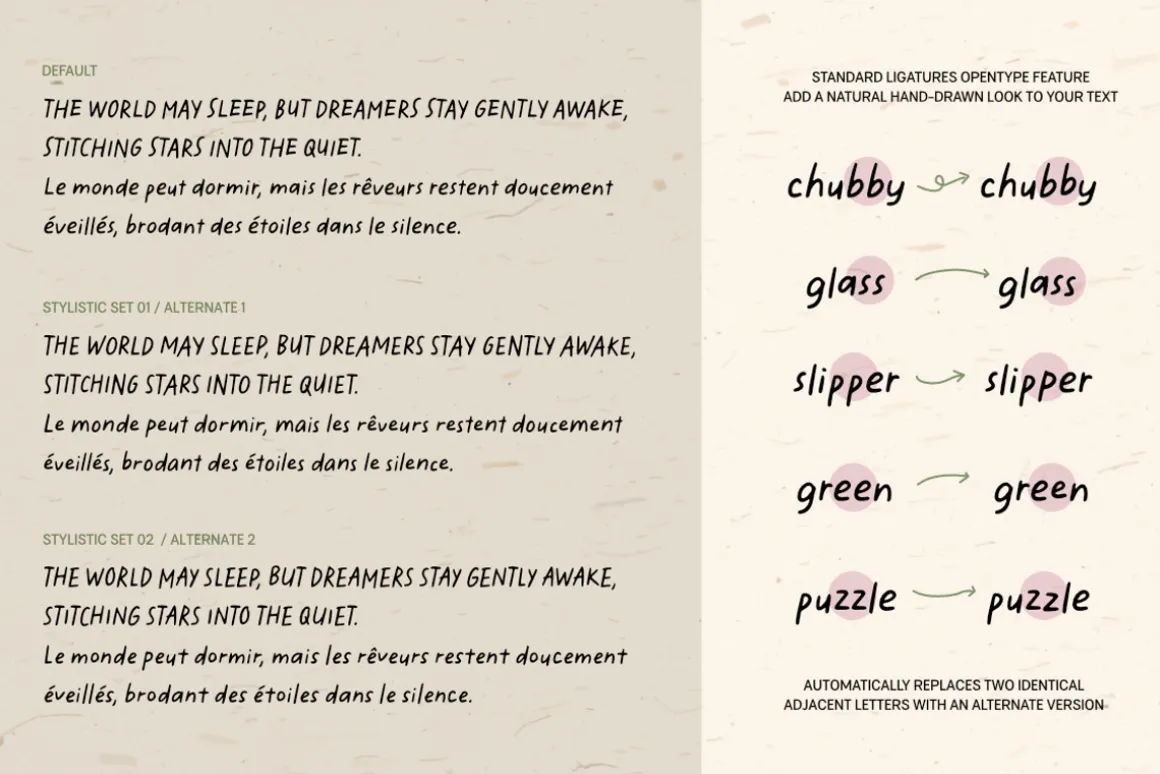 DEFAULT
THE WORLD MAY SLEEP, BUT DREAMERS STAY GENTLY AWAKE,
STITCHING STARS INTO THE QUIET.
Le monde peut dormir, mais les rêveurs restent doucement
éveillés, brodant des étoiles dans le silence.
STYLISTIC SET 01 / ALTERNATE 1
THE WORLD MAY SLEEP, BUT DREAMERS STAY GENTLY AWAKE,
STITCHING STARS INTO THE QUIET.
Le monde peut dormir, mais les rêveurs restent doucement
éveillés, brodant des étoiles dans le silence.
STYLISTIC SET 02 / ALTERNATE 2
THE WORLD MAY SLEEP, BUT DREAMERS STAY GENTLY AWAKE,
STITCHING STARS INTO THE QUIET.
Le monde peut dormir, mais les rêveurs restent doucement
éveillés, brodant des étoiles dans le silence.
STANDARD LIGATURES OPENTYPE FEATURE
ADD A NATURAL HAND-DRAWN LOOK TO YOUR TEXT
chubby chubby
glass glass
slipper slipper
green green
puzzle puzzle
AUTOMATICALLY REPLACES TWO IDENTICAL
ADJACENT LETTERS WITH AN ALTERNATE VERSION